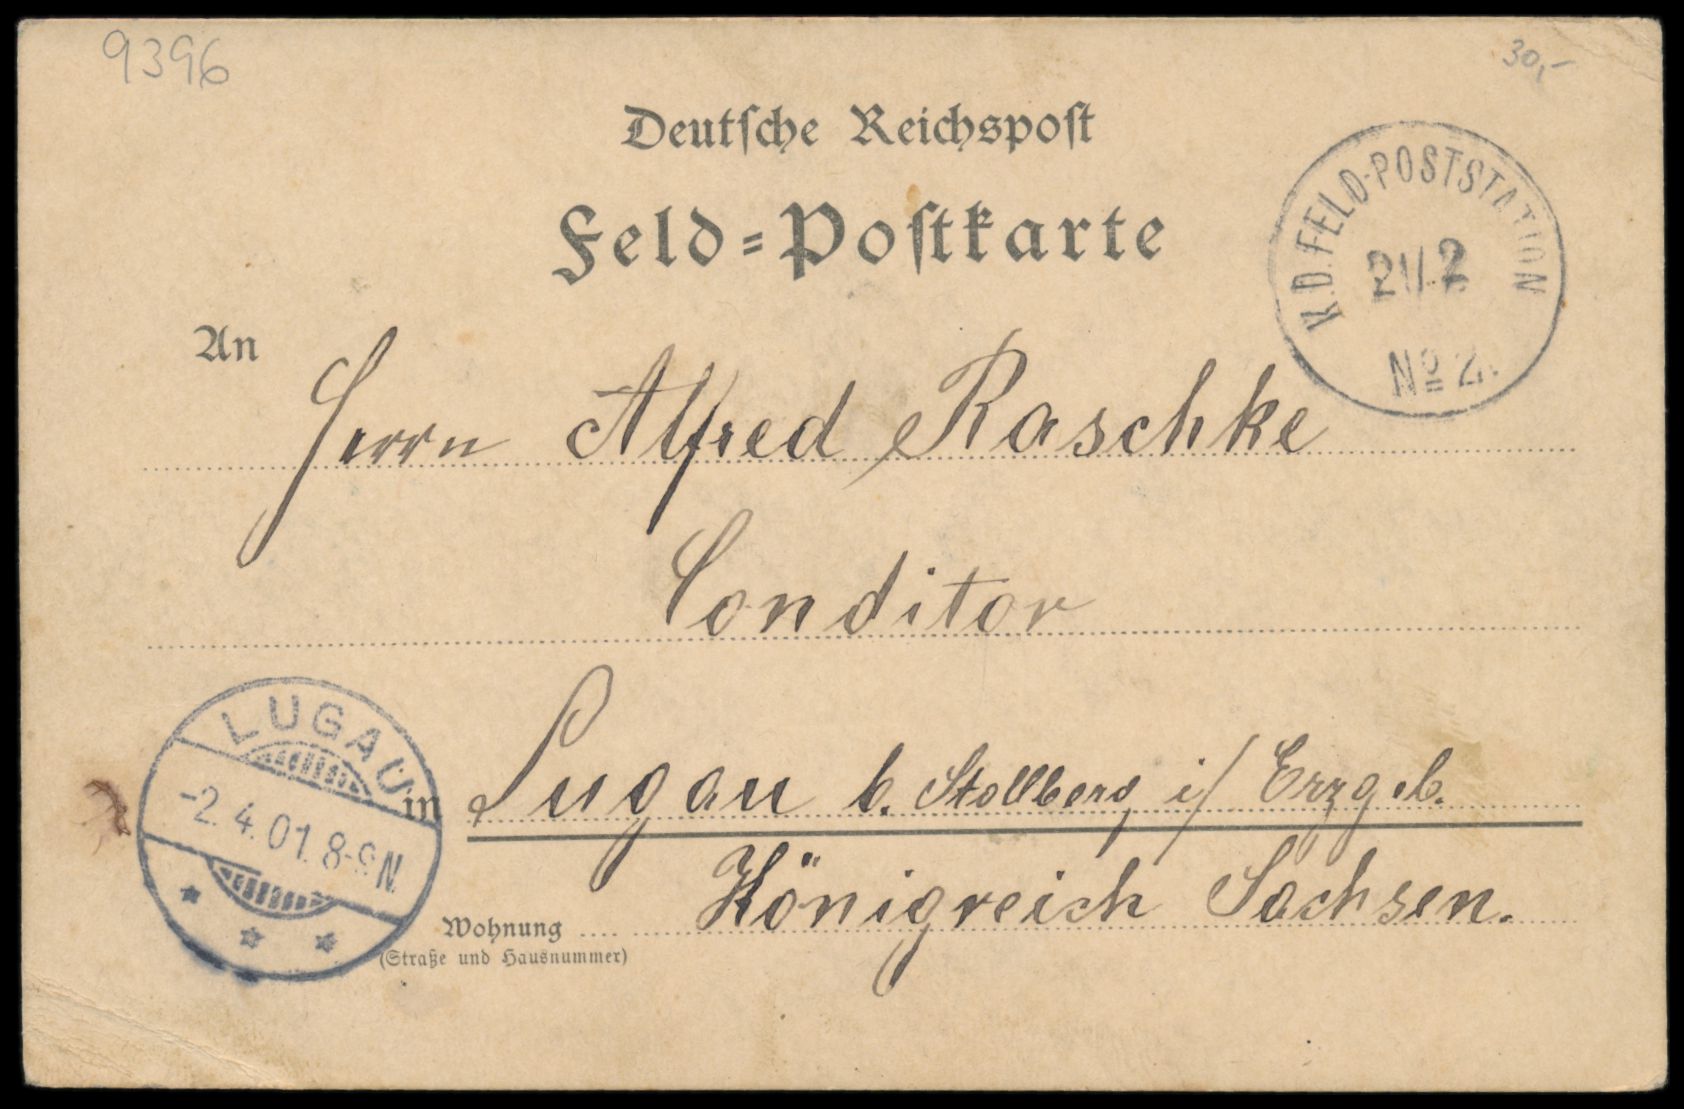 9396
30,-
Deutsche Reichspost
Feld-Postkarte
K.D. FELD-POSTSTATION
No 2.
An
Herrn Alfred Raschke
Conditor
LUGAU
-2.4.01. 8-9N.
in Lugau b. Stollberg i/ Erzgeb.
Königreich Sachsen.
Wohnung
(Straße und Hausnummer)